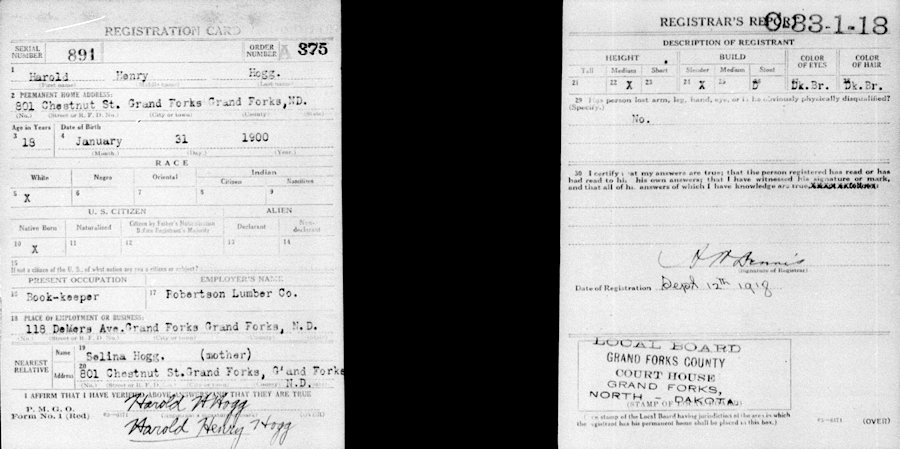 REGISTRATION CARD
SERIAL NUMBER 891 ORDER NUMBER A 375
1 Harold Henry Hogg.
(First name) (Middle name) (Last name)
2 PERMANENT HOME ADDRESS:
801 Chestnut St. Grand Forks Grand Forks, ND.
(No.) (Street or R. F. D. No.) (City or town) (County) (State)
Age in Years Date of Birth
3 18 4 January 31 1900
(Month.) (Day.) (Year.)
RACE
White Negro Oriental Indian
Citizen Noncitizen
5 X 6 7 8 9
U. S. CITIZEN ALIEN
Native Born Naturalized Citizen by Father's Naturalization Before Registrant's Majority Declarant Non-declarant
10 X 11 12 13 14
15
If not a citizen of the U. S., of what nation are you a citizen or subject?
PRESENT OCCUPATION EMPLOYER'S NAME
16 Book-keeper 17 Robertson Lumber Co.
18 PLACE OF EMPLOYMENT OR BUSINESS:
118 DeMers Ave. Grand Forks Grand Forks, N.D.
(No.) (Street or R. F. D. No.) (City or town) (County) (State)
NEAREST RELATIVE Name 19 Selina Hogg. (mother)
Address 20 801 Chestnut St. Grand Forks, G'and Forks
N.D.
I AFFIRM THAT I HAVE VERIFIED ABOVE ANSWERS AND THAT THEY ARE TRUE
P. M. G. O.
Form No. 1 (Red) Harold H Hogg
(OVER)
Harold Henry Hogg
REGISTRAR'S REPORT 33-1-18
DESCRIPTION OF REGISTRANT
HEIGHT BUILD COLOR OF EYES COLOR OF HAIR
Tall Medium Short Slender Medium Stout
21 22 X 23 24 X 25 26 27 Dk.Br. 28 Dk.Br.
29 Has person lost arm, leg, hand, eye, or is he obviously physically disqualified?
(Specify.)
No.
30 I certify that my answers are true; that the person registered has read or has
had read to him his own answers; that I have witnessed his signature or mark,
and that all of his answers of which I have knowledge are true
(Signature of Registrar)
Date of Registration Sept. 12th 1918
LOCAL BOARD
GRAND FORKS COUNTY
COURT HOUSE
GRAND FORKS,
NORTH - DAKOTA
(STAMP OF LOCAL BOARD)
(The stamp of the Local Board having jurisdiction of the area in which
the registrant has his permanent home shall be placed in this box.)
(OVER)